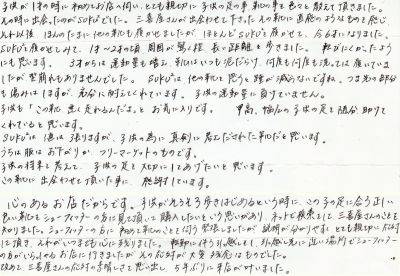 子供が1才の時に初めてお店へ伺い、とても親切に子供の足の事、靴の事を色々と教えて頂きました。
その時に出会ったのがSUPUでした。三喜屋さんが出会わせて下さった
それ以後、ほんのたまに他の靴も履かせましたが、ほとんどSUPUを履かせて、今6才になりました。
SUPUを履かせてみて、1才〜2才の頃、周囲が驚く程、長い距離を歩きました。
にも思います。3才からは運動量も増え、靴はいつも泥だらけ、何度も何度も洗っては履いていま
したが型崩れもありませんでした。SUPUは他の靴と思うと踵が減らないですね。つま先の部分
も傷みはしますが、充分に耐えてくれています。子供の運動量に負けていません。
子供も「この靴、速く走れるんだよ」とお気に入りです。甲高、幅広の子供の足を随分助けて
くれていると思います。
SUPUは値は張りますが、子供の為に真剣に考えだされた靴だと思います。
うちは服はお下がりか、フリーマーケットのものです。
子供の将来を考えて、子供の足を大切にしてあげたいと思います。
この靴に出会わせて頂いた事に、感謝しています。
心のあるお店だからです。子供がそろそろ歩きはじめるという時に、この子の足に合う正しい
良い靴をシューフィッターの方に見て頂いて購入したいという思いがあり、ネットで検索して三喜屋さんのことを
知りました。シューフィッターの方に初めて靴のことを伺う緊張しましたが、説明が分かりやすくとても親切に対応
して頂き、それがいつまでも心に残りました。転勤に伴う引越しをし、引越し先に近い場所でシューフィッター
の方がいらっしゃるお店に行きましたが、その対応が大変残念なものでした。
改めて三喜屋さんの対応の素晴しさを思い出し、5年ぶりに来店が叶いました。